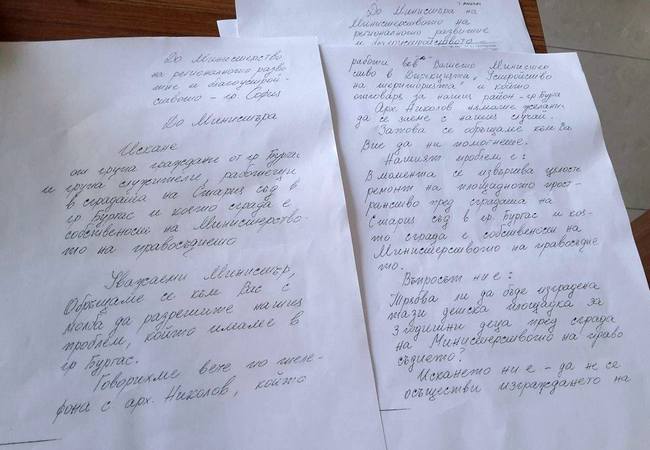 До Министерство
на регионалното разви-
тие и благоустрой-
ството - гр. София
До Министъра
Искане
от група граждани от гр. Бургас
и група служители, работещи
в сградата на Стария съд в
гр. Бургас и която сграда е
собственост на Министерство-
то на правосъдието
Уважаеми Министър,
Обръщаме се към Вас с
молба да разрешите нашия
проблем, който имаме в
гр. Бургас.
Говорихме вече по теле-
фона с арх. Николов, който
До Министъра на
Министерството на
регионалното развитие
и благоустройството -
работи във Вашето Министер
ство в Дирекцията „Устройство
на територията" и който
отговаря за нашия район - гр. Бургас
Арх. Николов нямаше желание
да се заеме с нашия случай.
Затова се обръщаме към Вас
Вие да ни помогнете.
Нашият проблем е:
В момента се извършва цялостен
ремонт на площадното прост-
ранство пред сградата на
Стария съд в гр. Бургас и коя-
то сграда е собственост на
Министерството на правосъдие
то.
Въпросът ни е:
Трябва ли да бъде изградена
тази детска площадка за
3 годишни деца пред сграда
на Министерството на право
съдието?
Искането ни е - да не се
осъществи изграждането на